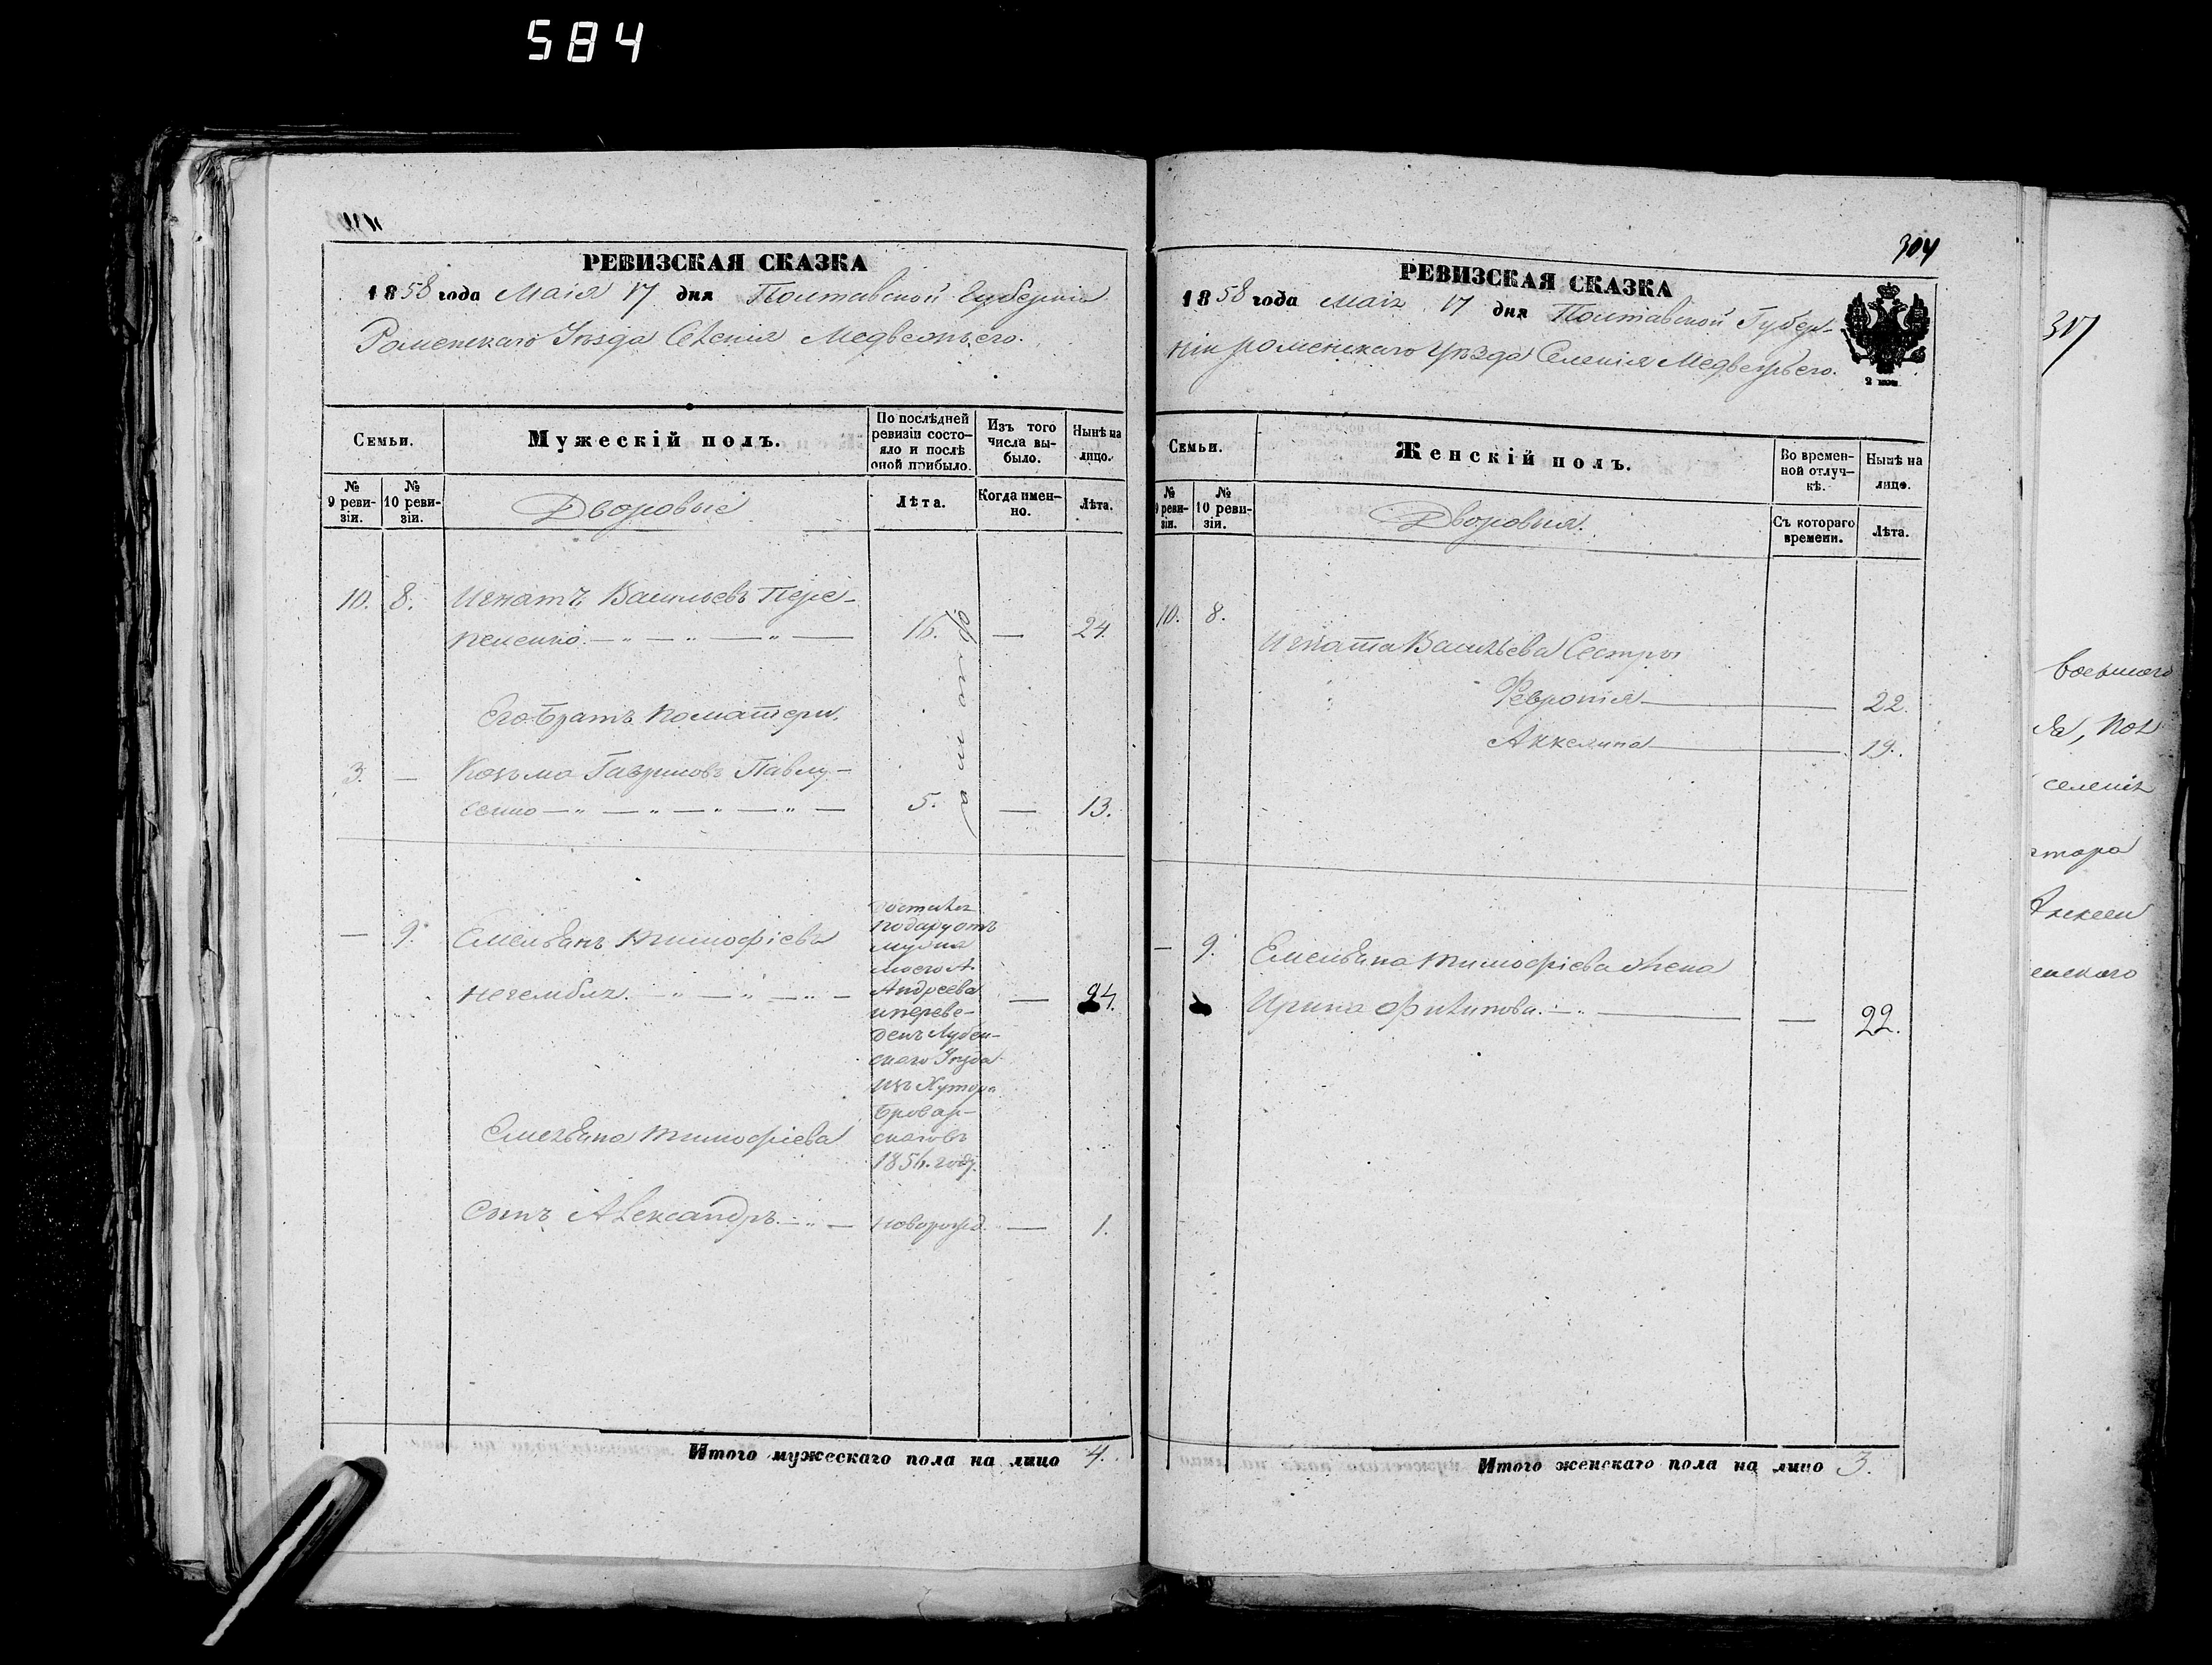 584
РЕВИЗСКАЯ СКАЗКА
1858 года Маія 17 дня Полтавской Губерніи
Роменскаго Уѣзда Селенія Медвежьего.
Семьи.
Мужескій полъ.
По послѣдней ревизіи состояло и послѣ оной прибыло.
Изъ того числа выбыло.
Нынѣ на лицо.
№ 9 ревизіи.
№ 10 ревизіи.
Дворовыіе
Лѣта.
Когда именно.
Лѣта.
10. 8. Игнатъ Васильевъ Пере-
16. — 24.
Его Братъ поматери.
3. — Козьма Гавриловъ Павлу-
сенко 5. — 13.
— 9. Емельянъ Тимофіевъ
24.
подаруотъ
мужа
моего А.
Андреева
ипереве-
денъ Лубен-
скаго Уѣзда
изъ Хутора
Бровар-
скаговъ
1856. году.
Емельяна Тимофіева
Сынъ Александръ новорожд. — 1.
Итого мужескаго пола на лицо 4.
304
РЕВИЗСКАЯ СКАЗКА
1858 года Маія 17 дня Полтавской Губер-
ніи роменскаго Уѣзда Селенія Медвежьего.
2 коп.
Семьи.
Женскій полъ.
Во временной отлучкѣ.
Нынѣ на лицо.
№ 9 ревизіи.
№ 10 ревизіи.
Дворовыя.
Съ котораго времени.
Лѣта.
10. 8.
Игната Васильева Сестры
Февронія 22.
Аккелина 19.
— 9. Емельяна Тимофіева Жена
Ирина Филипова. — 22.
Итого женскаго пола на лицо 3.
317
восьмого
селенія